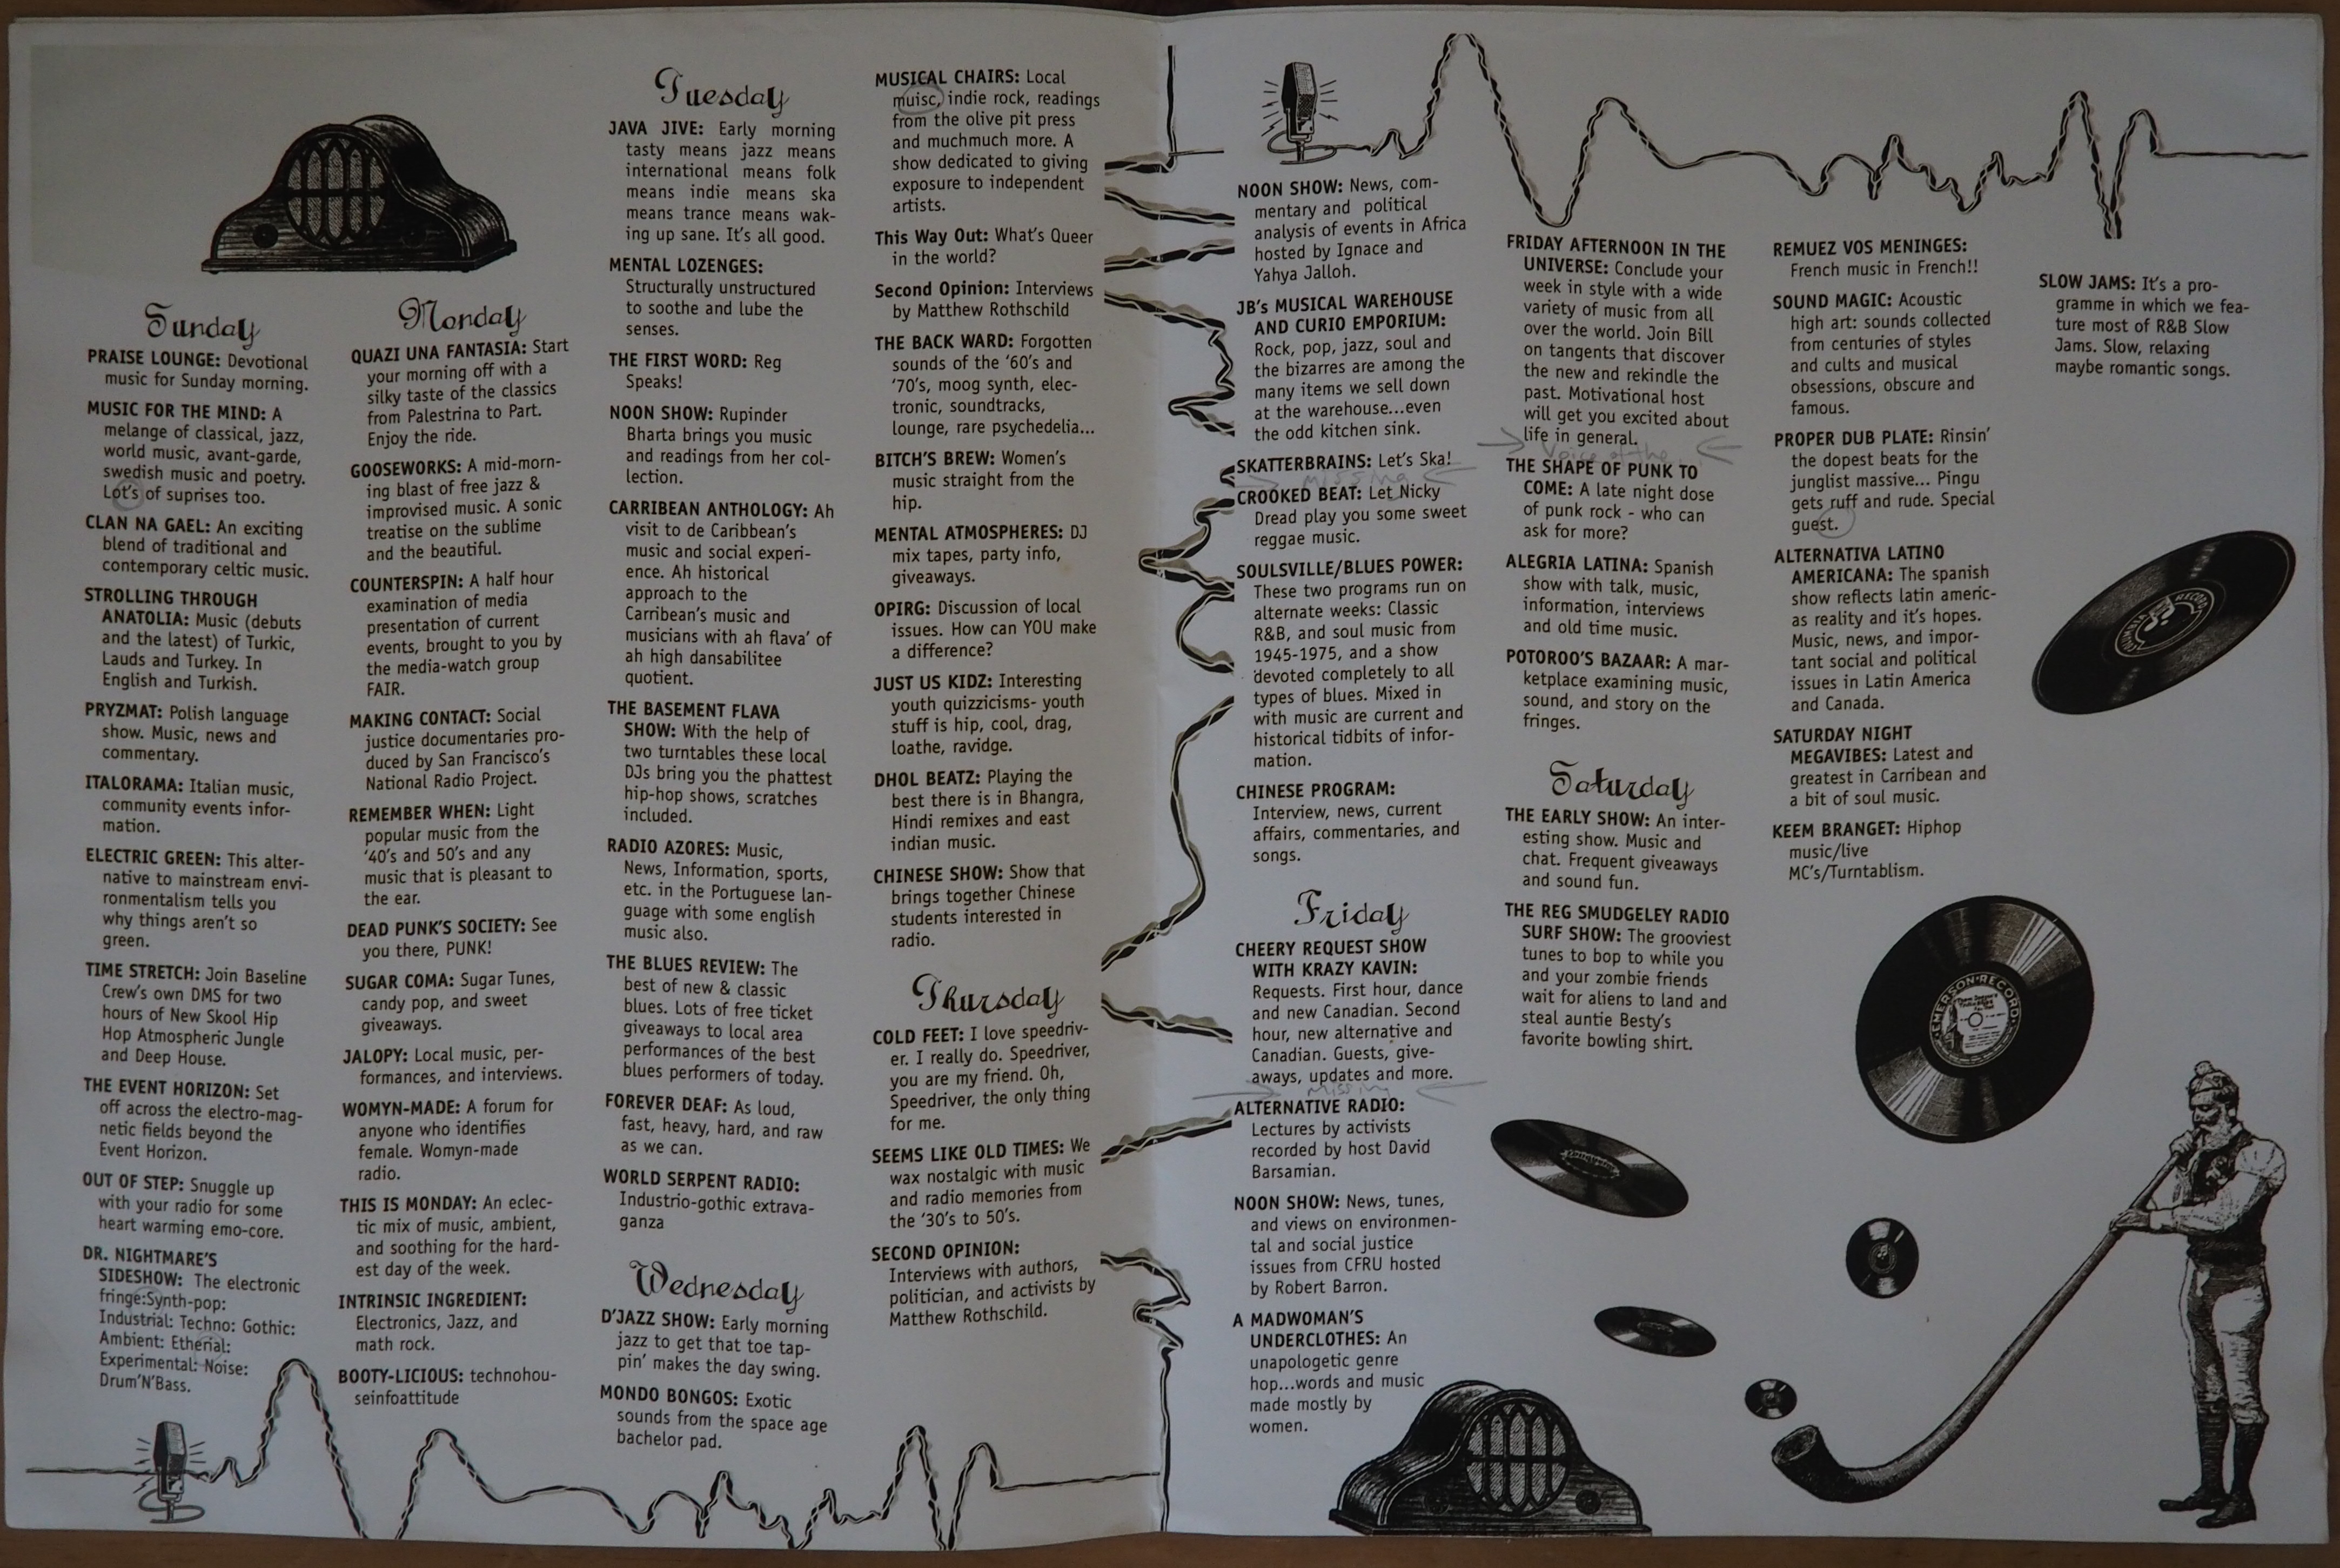 Sunday
PRAISE LOUNGE: Devotional
music for Sunday morning.
MUSIC FOR THE MIND: A
melange of classical, jazz,
world music, avant-garde,
swedish music and poetry.
Lot's of suprises too.
CLAN NA GAEL: An exciting
blend of traditional and
contemporary celtic music.
STROLLING THROUGH
ANATOLIA: Music (debuts
and the latest) of Turkic,
Lauds and Turkey. In
English and Turkish.
PRYZMAT: Polish language
show. Music, news and
commentary.
ITALORAMA: Italian music,
community events infor-
mation.
ELECTRIC GREEN: This alter-
native to mainstream envi-
ronmentalism tells you
why things aren't so
green.
TIME STRETCH: Join Baseline
Crew's own DMS for two
hours of New Skool Hip
Hop Atmospheric Jungle
and Deep House.
THE EVENT HORIZON: Set
off across the electro-mag-
netic fields beyond the
Event Horizon.
OUT OF STEP: Snuggle up
with your radio for some
heart warming emo-core.
DR. NIGHTMARE'S
SIDESHOW: The electronic
fringe:Synth-pop:
Industrial: Techno: Gothic:
Ambient: Etherial:
Experimental: Noise:
Drum'N'Bass.
Monday
QUAZI UNA FANTASIA: Start
your morning off with a
silky taste of the classics
from Palestrina to Part.
Enjoy the ride.
GOOSEWORKS: A mid-morn-
ing blast of free jazz &
improvised music. A sonic
treatise on the sublime
and the beautiful.
COUNTERSPIN: A half hour
examination of media
presentation of current
events, brought to you by
the media-watch group
FAIR.
MAKING CONTACT: Social
justice documentaries pro-
duced by San Francisco's
National Radio Project.
REMEMBER WHEN: Light
popular music from the
'40's and 50's and any
music that is pleasant to
the ear.
DEAD PUNK'S SOCIETY: See
you there, PUNK!
SUGAR COMA: Sugar Tunes,
candy pop, and sweet
giveaways.
JALOPY: Local music, per-
formances, and interviews.
WOMYN-MADE: A forum for
anyone who identifies
female. Womyn-made
radio.
THIS IS MONDAY: An eclec-
tic mix of music, ambient,
and soothing for the hard-
est day of the week.
INTRINSIC INGREDIENT:
Electronics, Jazz, and
math rock.
BOOTY-LICIOUS: technohou-
seinfoattitude
Tuesday
JAVA JIVE: Early morning
tasty means jazz means
international means folk
means indie means ska
means trance means wak-
ing up sane. It's all good.
MENTAL LOZENGES:
Structurally unstructured
to soothe and lube the
senses.
THE FIRST WORD: Reg
Speaks!
NOON SHOW: Rupinder
Bharta brings you music
and readings from her col-
lection.
CARRIBEAN ANTHOLOGY: Ah
visit to de Caribbean's
music and social experi-
ence. Ah historical
approach to the
Carribean's music and
musicians with ah flava' of
ah high dansabilitee
quotient.
THE BASEMENT FLAVA
SHOW: With the help of
two turntables these local
DJs bring you the phattest
hip-hop shows, scratches
included.
RADIO AZORES: Music,
News, Information, sports,
etc. in the Portuguese lan-
guage with some english
music also.
THE BLUES REVIEW: The
best of new & classic
blues. Lots of free ticket
giveaways to local area
performances of the best
blues performers of today.
FOREVER DEAF: As loud,
fast, heavy, hard, and raw
as we can.
WORLD SERPENT RADIO:
Industrio-gothic extrava-
ganza
Wednesday
D'JAZZ SHOW: Early morning
jazz to get that toe tap-
pin' makes the day swing.
MONDO BONGOS: Exotic
sounds from the space age
bachelor pad.
MUSICAL CHAIRS: Local
muisc, indie rock, readings
from the olive pit press
and muchmuch more. A
show dedicated to giving
exposure to independent
artists.
This Way Out: What's Queer
in the world?
Second Opinion: Interviews
by Matthew Rothschild
THE BACK WARD: Forgotten
sounds of the '60's and
'70's, moog synth, elec-
tronic, soundtracks,
lounge, rare psychedelia...
BITCH'S BREW: Women's
music straight from the
hip.
MENTAL ATMOSPHERES: DJ
mix tapes, party info,
giveaways.
OPIRG: Discussion of local
issues. How can YOU make
a difference?
JUST US KIDZ: Interesting
youth quizzicisms- youth
stuff is hip, cool, drag,
loathe, ravidge.
DHOL BEATZ: Playing the
best there is in Bhangra,
Hindi remixes and east
indian music.
CHINESE SHOW: Show that
brings together Chinese
students interested in
radio.
Thursday
COLD FEET: I love speedriv-
er. I really do. Speedriver,
you are my friend. Oh,
Speedriver, the only thing
for me.
SEEMS LIKE OLD TIMES: We
wax nostalgic with music
and radio memories from
the '30's to 50's.
SECOND OPINION:
Interviews with authors,
politician, and activists by
Matthew Rothschild.
NOON SHOW: News, com-
mentary and political
analysis of events in Africa
hosted by Ignace and
Yahya Jalloh.
JB's MUSICAL WAREHOUSE
AND CURIO EMPORIUM:
Rock, pop, jazz, soul and
the bizarres are among the
many items we sell down
at the warehouse...even
the odd kitchen sink.
SKATTERBRAINS: Let's Ska!
missing
CROOKED BEAT: Let Nicky
Dread play you some sweet
reggae music.
SOULSVILLE/BLUES POWER:
These two programs run on
alternate weeks: Classic
R&B, and soul music from
1945-1975, and a show
devoted completely to all
types of blues. Mixed in
with music are current and
historical tidbits of infor-
mation.
CHINESE PROGRAM:
Interview, news, current
affairs, commentaries, and
songs.
Friday
CHEERY REQUEST SHOW
WITH KRAZY KAVIN:
Requests. First hour, dance
and new Canadian. Second
hour, new alternative and
Canadian. Guests, give-
aways, updates and more.
missing
ALTERNATIVE RADIO:
Lectures by activists
recorded by host David
Barsamian.
NOON SHOW: News, tunes,
and views on environmen-
tal and social justice
issues from CFRU hosted
by Robert Barron.
A MADWOMAN'S
UNDERCLOTHES: An
unapologetic genre
hop...words and music
made mostly by
women.
FRIDAY AFTERNOON IN THE
UNIVERSE: Conclude your
week in style with a wide
variety of music from all
over the world. Join Bill
on tangents that discover
the new and rekindle the
past. Motivational host
will get you excited about
life in general.
Voice of the
THE SHAPE OF PUNK TO
COME: A late night dose
of punk rock - who can
ask for more?
ALEGRIA LATINA: Spanish
show with talk, music,
information, interviews
and old time music.
POTOROO'S BAZAAR: A mar-
ketplace examining music,
sound, and story on the
fringes.
Saturday
THE EARLY SHOW: An inter-
esting show. Music and
chat. Frequent giveaways
and sound fun.
THE REG SMUDGELEY RADIO
SURF SHOW: The grooviest
tunes to bop to while you
and your zombie friends
wait for aliens to land and
steal auntie Besty's
favorite bowling shirt.
REMUEZ VOS MENINGES:
French music in French!!
SOUND MAGIC: Acoustic
high art: sounds collected
from centuries of styles
and cults and musical
obsessions, obscure and
famous.
PROPER DUB PLATE: Rinsin'
the dopest beats for the
junglist massive... Pingu
gets ruff and rude. Special
guest.
ALTERNATIVA LATINO
AMERICANA: The spanish
show reflects latin americ-
as reality and it's hopes.
Music, news, and impor-
tant social and political
issues in Latin America
and Canada.
SATURDAY NIGHT
MEGAVIBES: Latest and
greatest in Carribean and
a bit of soul music.
KEEM BRANGET: Hiphop
music/live
MC's/Turntablism.
SLOW JAMS: It's a pro-
gramme in which we fea-
ture most of R&B Slow
Jams. Slow, relaxing
maybe romantic songs.
COLUMBIA RECORD
EMERSON RECORD